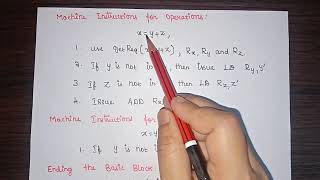 Machine Instructions for Operations:
x = y + z,
1. use getReg(x=y+z), Rx, Ry and Rz
2. If y is not in, then issue LD Ry, y'
3. If z is not in then LD Rz, z'
4. Issue ADD Rx
Machine Instructions for
x=y
1. If y is not in
Ending the Basic Block